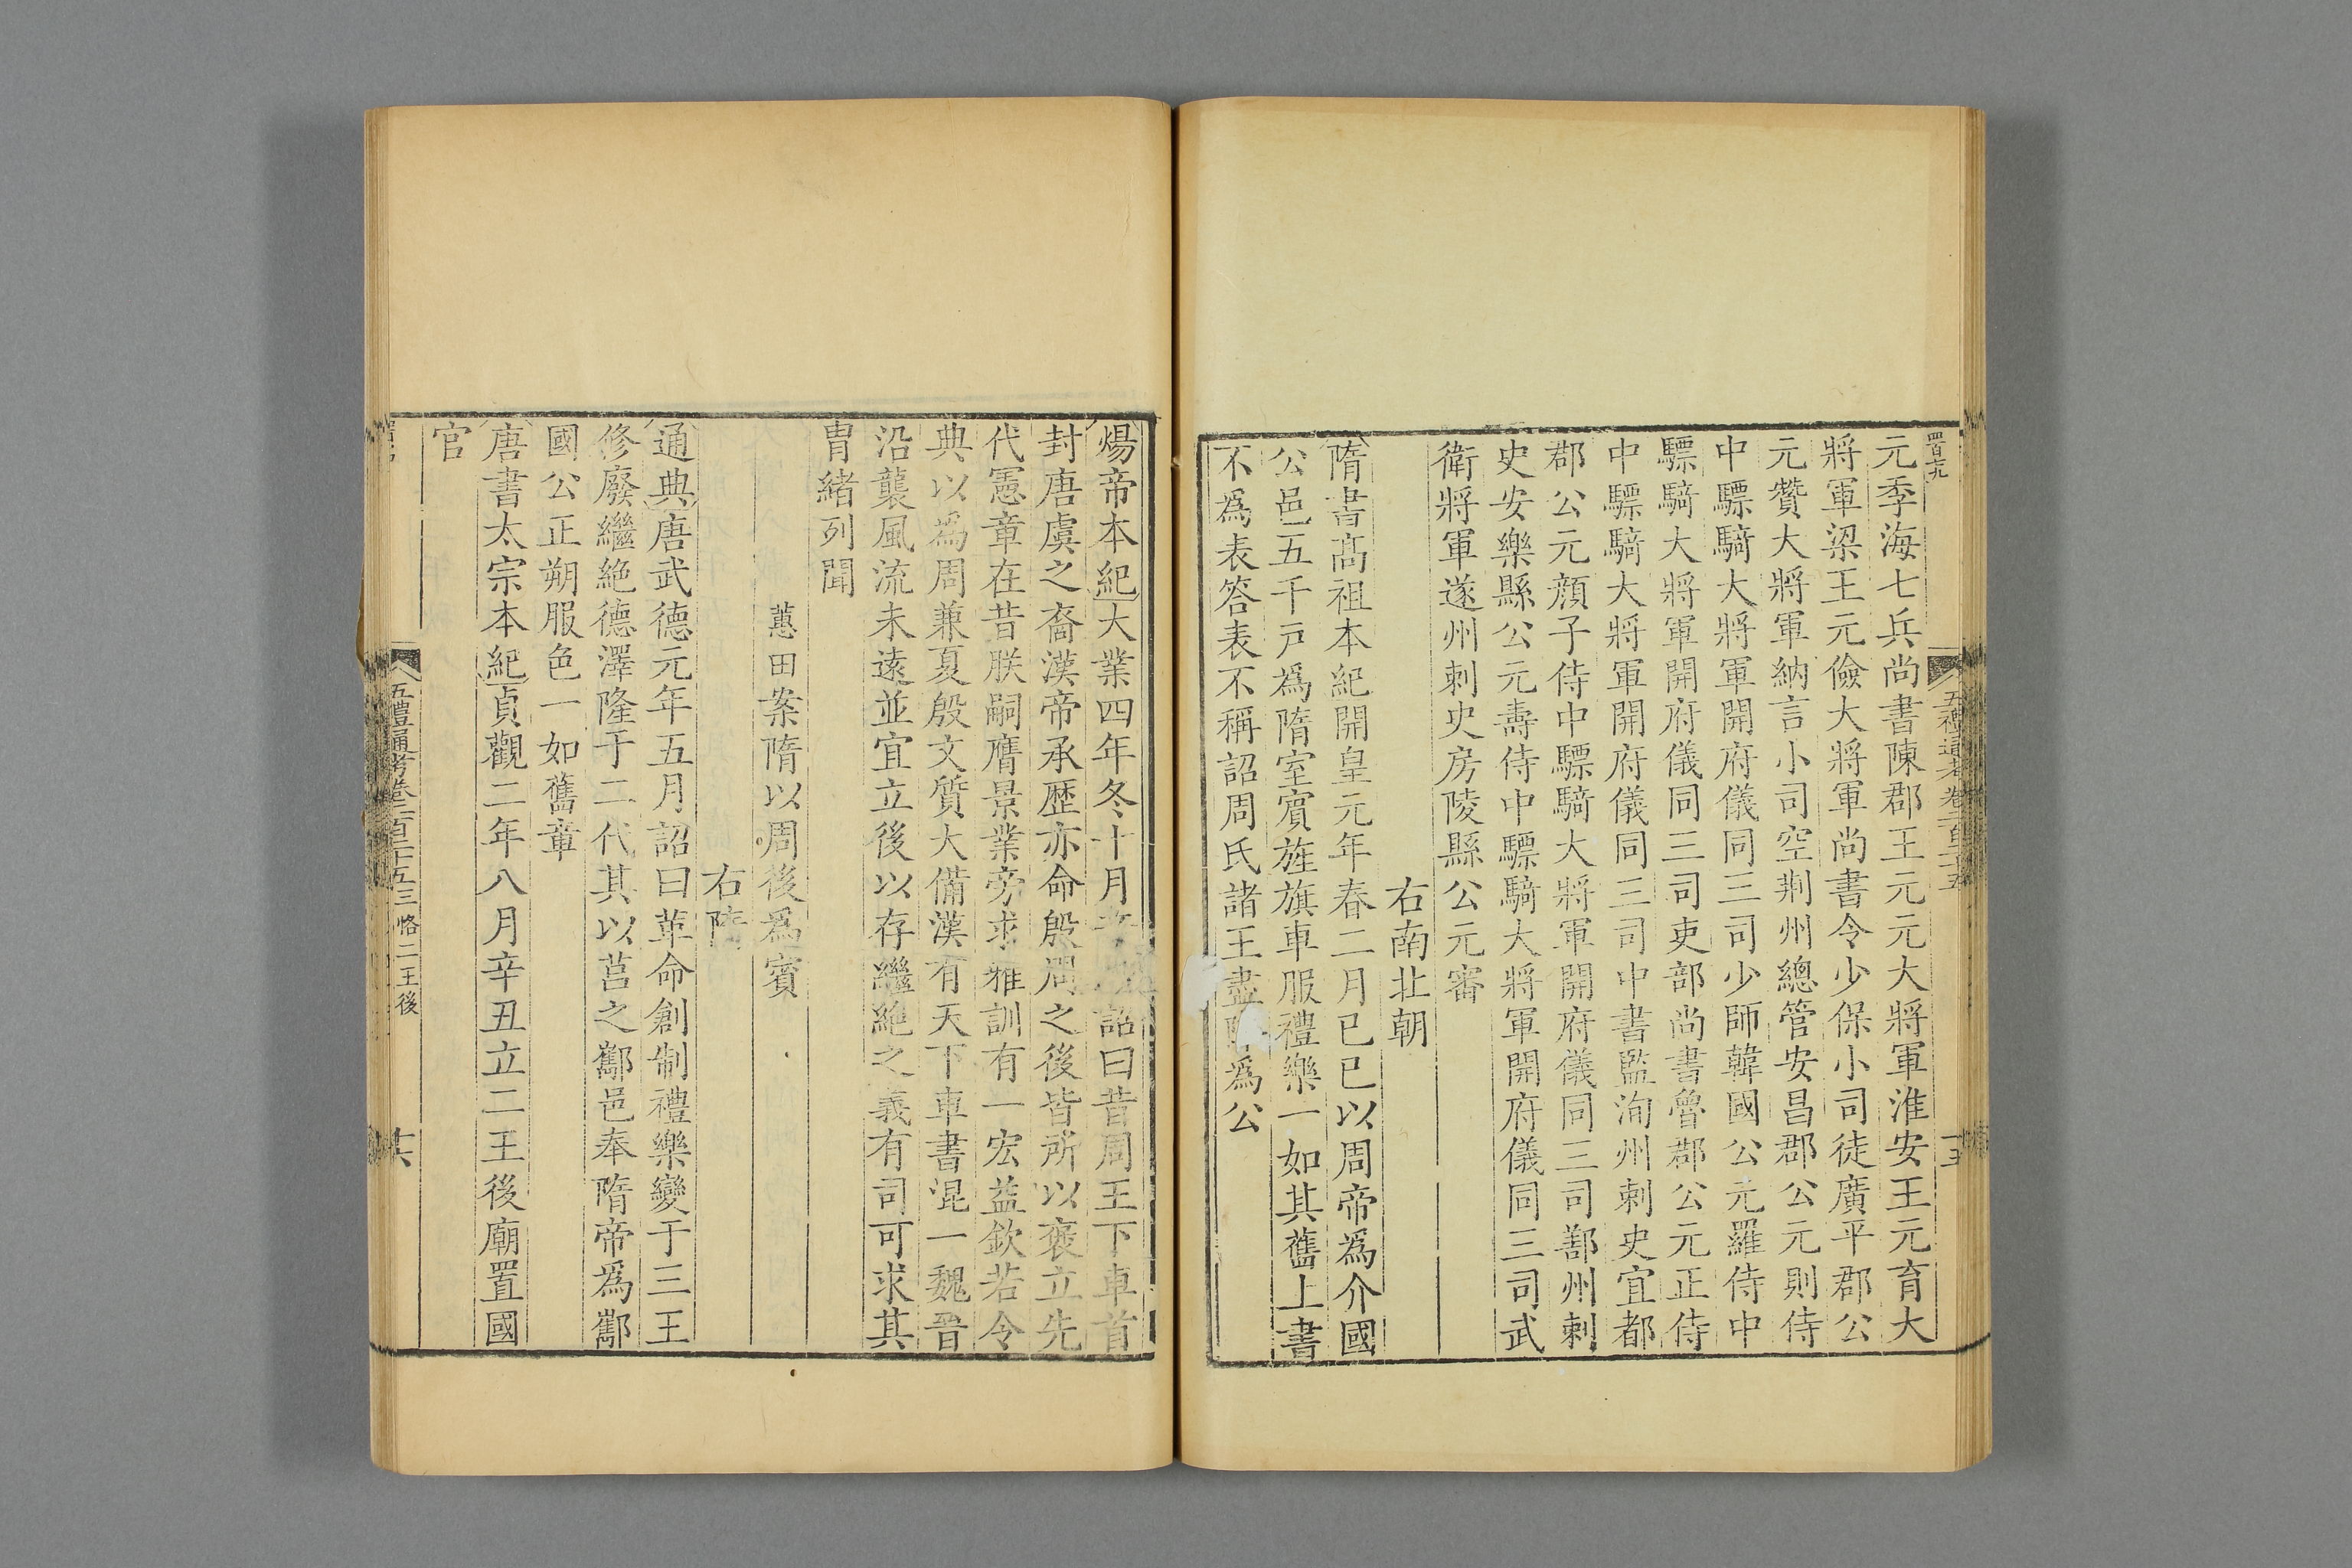 元季海七兵尚書陳郡王元元大將軍淮安王元育大
將軍梁王元儉大將軍尚書令少保小司徒廣平郡公
元贊大將軍納言小司空荆州總管安昌郡公元則侍
中驃騎大將軍開府儀同三司少師韓國公元羅侍中
驃騎大將軍開府儀同三司吏部尚書魯郡公元正侍
中驃騎大將軍開府儀同三司中書監洵州刺史宜都
郡公元顔子侍中驃騎大將軍開府儀同三司鄯州刺
史安樂縣公元壽侍中驃騎大將軍開府儀同三司武
衛將軍遂州刺史房陵縣公元審
右南北朝
隋書高祖本紀開皇元年春二月已巳以周帝爲介國
公邑五千戸爲隋室賓旌旗車服禮樂一如其舊上書
不爲表答表不稱詔周氏諸王盡爲公
煬帝本紀大業四年冬十月詔曰昔周王下車首
封唐虞之裔漢帝承歷亦命殷周之後皆所以褒立先
代憲章在昔朕嗣膺景業旁求雅訓有一宏益欽若令
典以爲周兼夏殷文質大備漢有天下車書混一魏晉
沿襲風流未遠並宜立後以存繼絶之義有司可求其
胄緒列聞
蕙田案隋以周後爲賓
右隋
通典唐武德元年五月詔曰革命創制禮樂變于三王
修廢繼絶德澤隆于二代其以莒之酅邑奉隋帝爲酅
國公正朔服色一如舊章
唐書太宗本紀貞觀二年八月辛丑立二王後廟置國
官
五禮通考卷二百二十五 三恪二王後